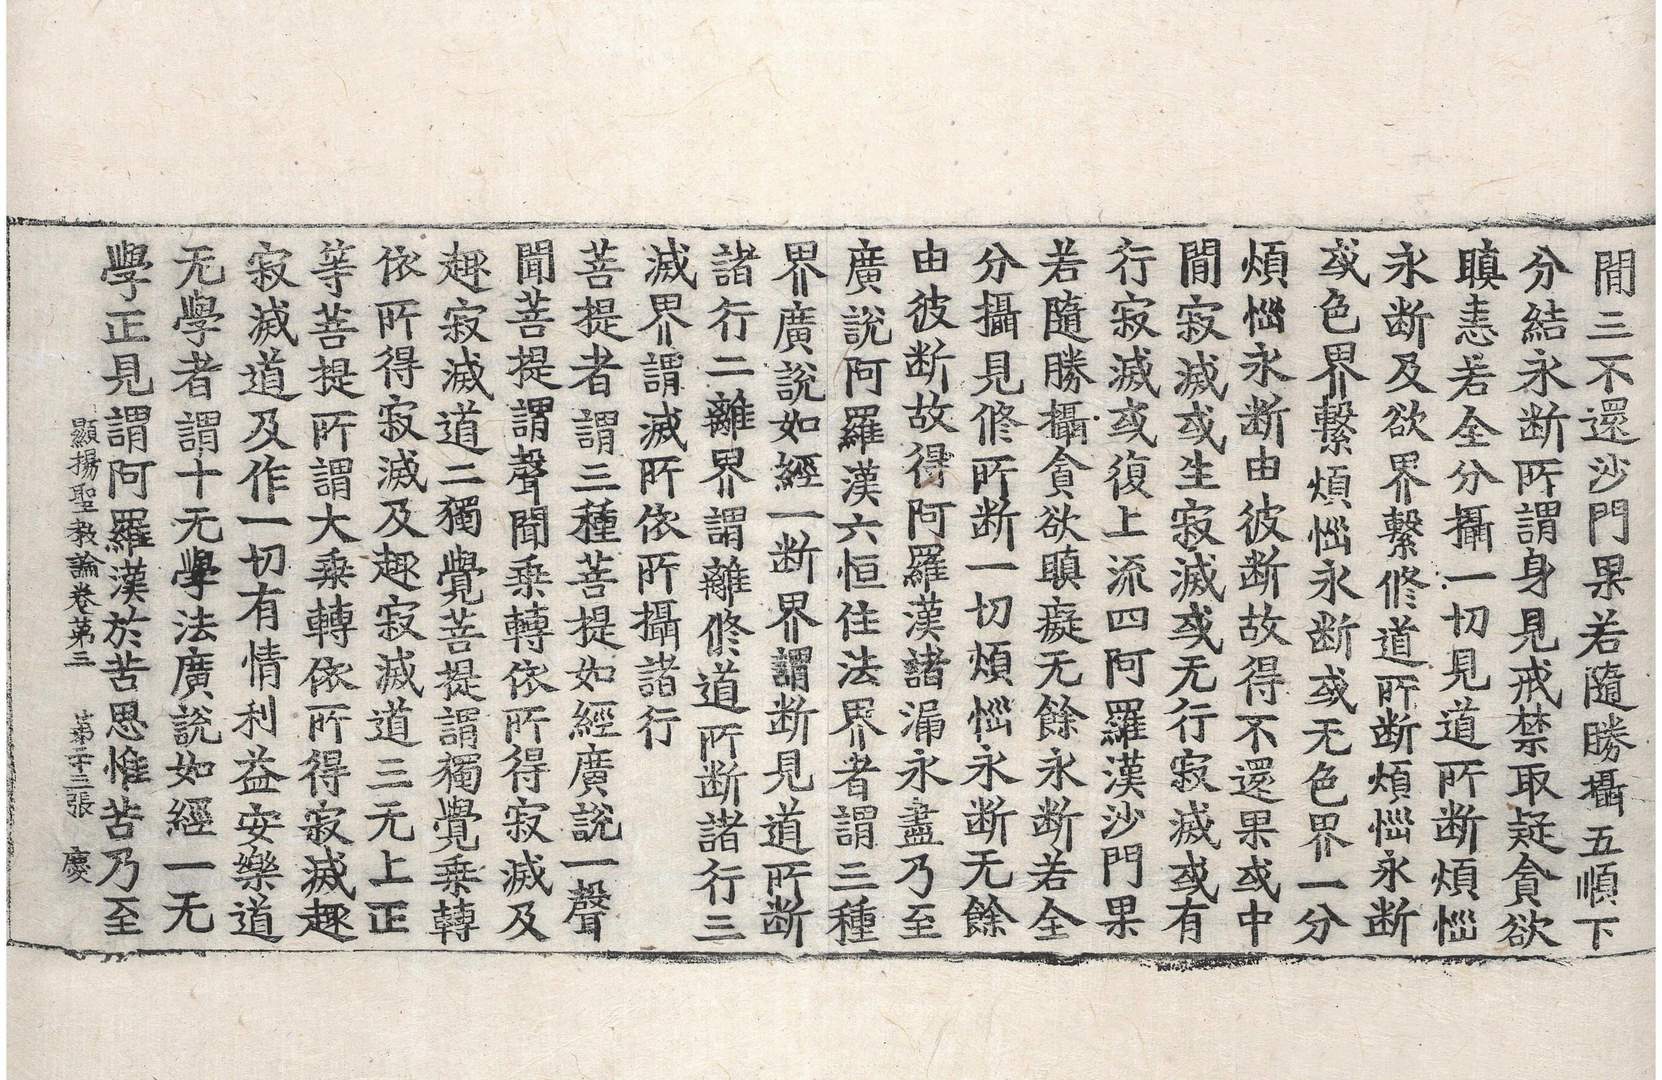 間三不還沙門果若隨勝攝五順下
分結永断所謂身見戒禁取疑貪欲
瞋恚若全分攝一切見道所断煩惱
永断及欲界繫修道所断煩惱永断
或色界繫煩惱永断或无色界一分
煩惱永断由彼断故得不還果或中
間寂滅或生寂滅或无行寂滅或有
行寂滅或復上流四阿羅漢沙門果
若隨勝攝貪欲瞋癡无餘永断若全
分攝見修所断一切煩惱永断无餘
由彼断故得阿羅漢諸漏永盡乃至
廣說阿羅漢六恒住法界者謂三種
界廣說如經一断界謂断見道所断
諸行二離界謂離修道所断諸行三
滅界謂滅所依所攝諸行
菩提者謂三種菩提如經廣說一聲
聞菩提謂聲聞乘轉依所得寂滅及
趣寂滅道二獨覺菩提謂獨覺乘轉
依所得寂滅及趣寂滅道三无上正
等菩提所謂大乘轉依所得寂滅趣
寂滅道及作一切有情利益安樂道
无學者謂十无學法廣說如經一无
學正見謂阿羅漢於苦思惟苦乃至
顯揚聖教論卷第三 第二十三張 慶